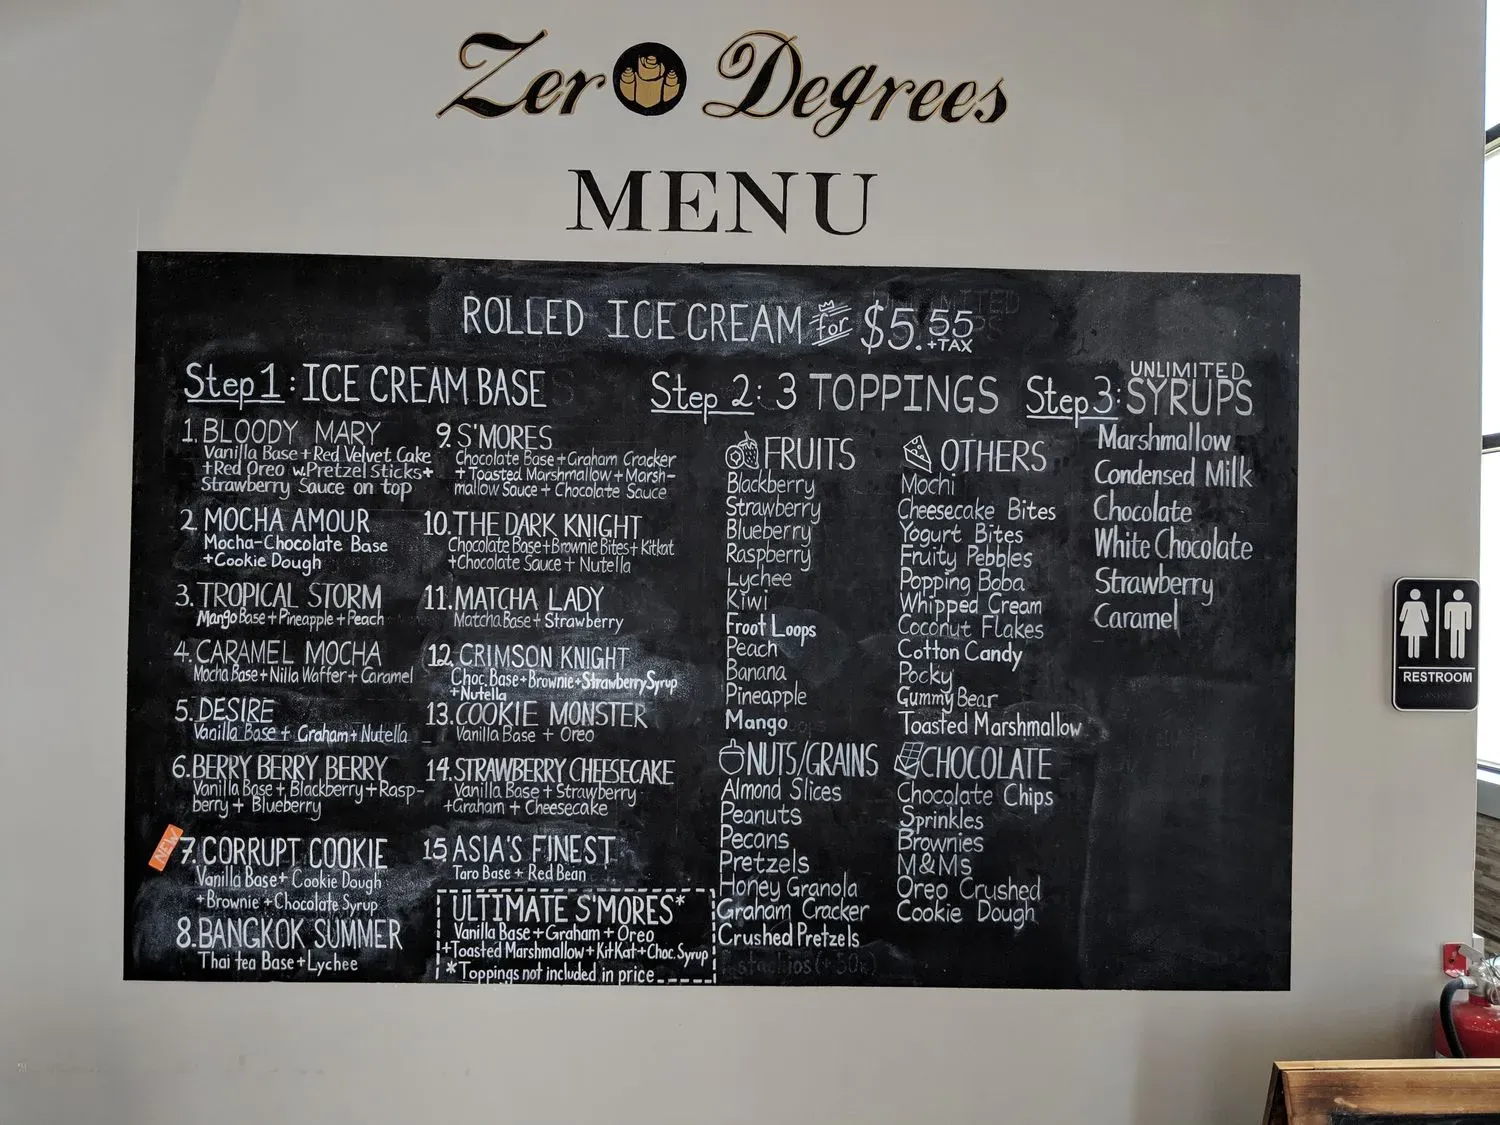 Zero Degrees
MENU
ROLLED ICE CREAM for $5.55
+TAX
Step 1: ICE CREAM BASE
1. BLOODY MARY
Vanilla Base + Red Velvet Cake
+Red Oreo w.Pretzel Sticks+
Strawberry Sauce on top
2. MOCHA AMOUR
Mocha-Chocolate Base
+Cookie Dough
3. TROPICAL STORM
Mango Base + Pineapple + Peach
4. CARAMEL MOCHA
Mocha Base + Nilla Waffer + Caramel
5. DESIRE
Vanilla Base + Graham + Nutella
6. BERRY BERRY BERRY
Vanilla Base + Blackberry + Rasp-
berry + Blueberry
NEW
7. CORRUPT COOKIE
Vanilla Base + Cookie Dough
+Brownie + Chocolate Syrup
8. BANGKOK SUMMER
Thai tea Base + Lychee
9. S'MORES
Chocolate Base + Graham Cracker
+ Toasted Marshmallow + Marsh-
mallow Sauce + Chocolate Sauce
10. THE DARK KNIGHT
Chocolate Base + Brownie Bites + Kitkat
+Chocolate Sauce + Nutella
11. MATCHA LADY
Matcha Base + Strawberry
12. CRIMSON KNIGHT
Choc. Base + Brownie + Strawberry Syrup
+Nutella
13. COOKIE MONSTER
Vanilla Base + Oreo
14. STRAWBERRY CHEESECAKE
Vanilla Base + Strawberry
+Graham + Cheesecake
15 ASIA'S FINEST
Taro Base + Red Bean
ULTIMATE S'MORES*
Vanilla Base + Graham + Oreo
+Toasted Marshmallow + KitKat + Choc. Syrup
*Toppings not included in price
Step 2: 3 TOPPINGS
FRUITS
Blackberry
Strawberry
Blueberry
Raspberry
Lychee
Kiwi
Froot Loops
Peach
Banana
Pineapple
Mango
NUTS/GRAINS
Almond Slices
Peanuts
Pecans
Pretzels
Honey Granola
Graham Cracker
Crushed Pretzels
OTHERS
Mochi
Cheesecake Bites
Yogurt Bites
Fruity Pebbles
Popping Boba
Whipped Cream
Coconut Flakes
Cotton Candy
Pocky
Gummy Bear
Toasted Marshmallow
CHOCOLATE
Chocolate Chips
Sprinkles
Brownies
M&Ms
Oreo Crushed
Cookie Dough
Step 3: UNLIMITED
SYRUPS
Marshmallow
Condensed Milk
Chocolate
White Chocolate
Strawberry
Caramel
RESTROOM